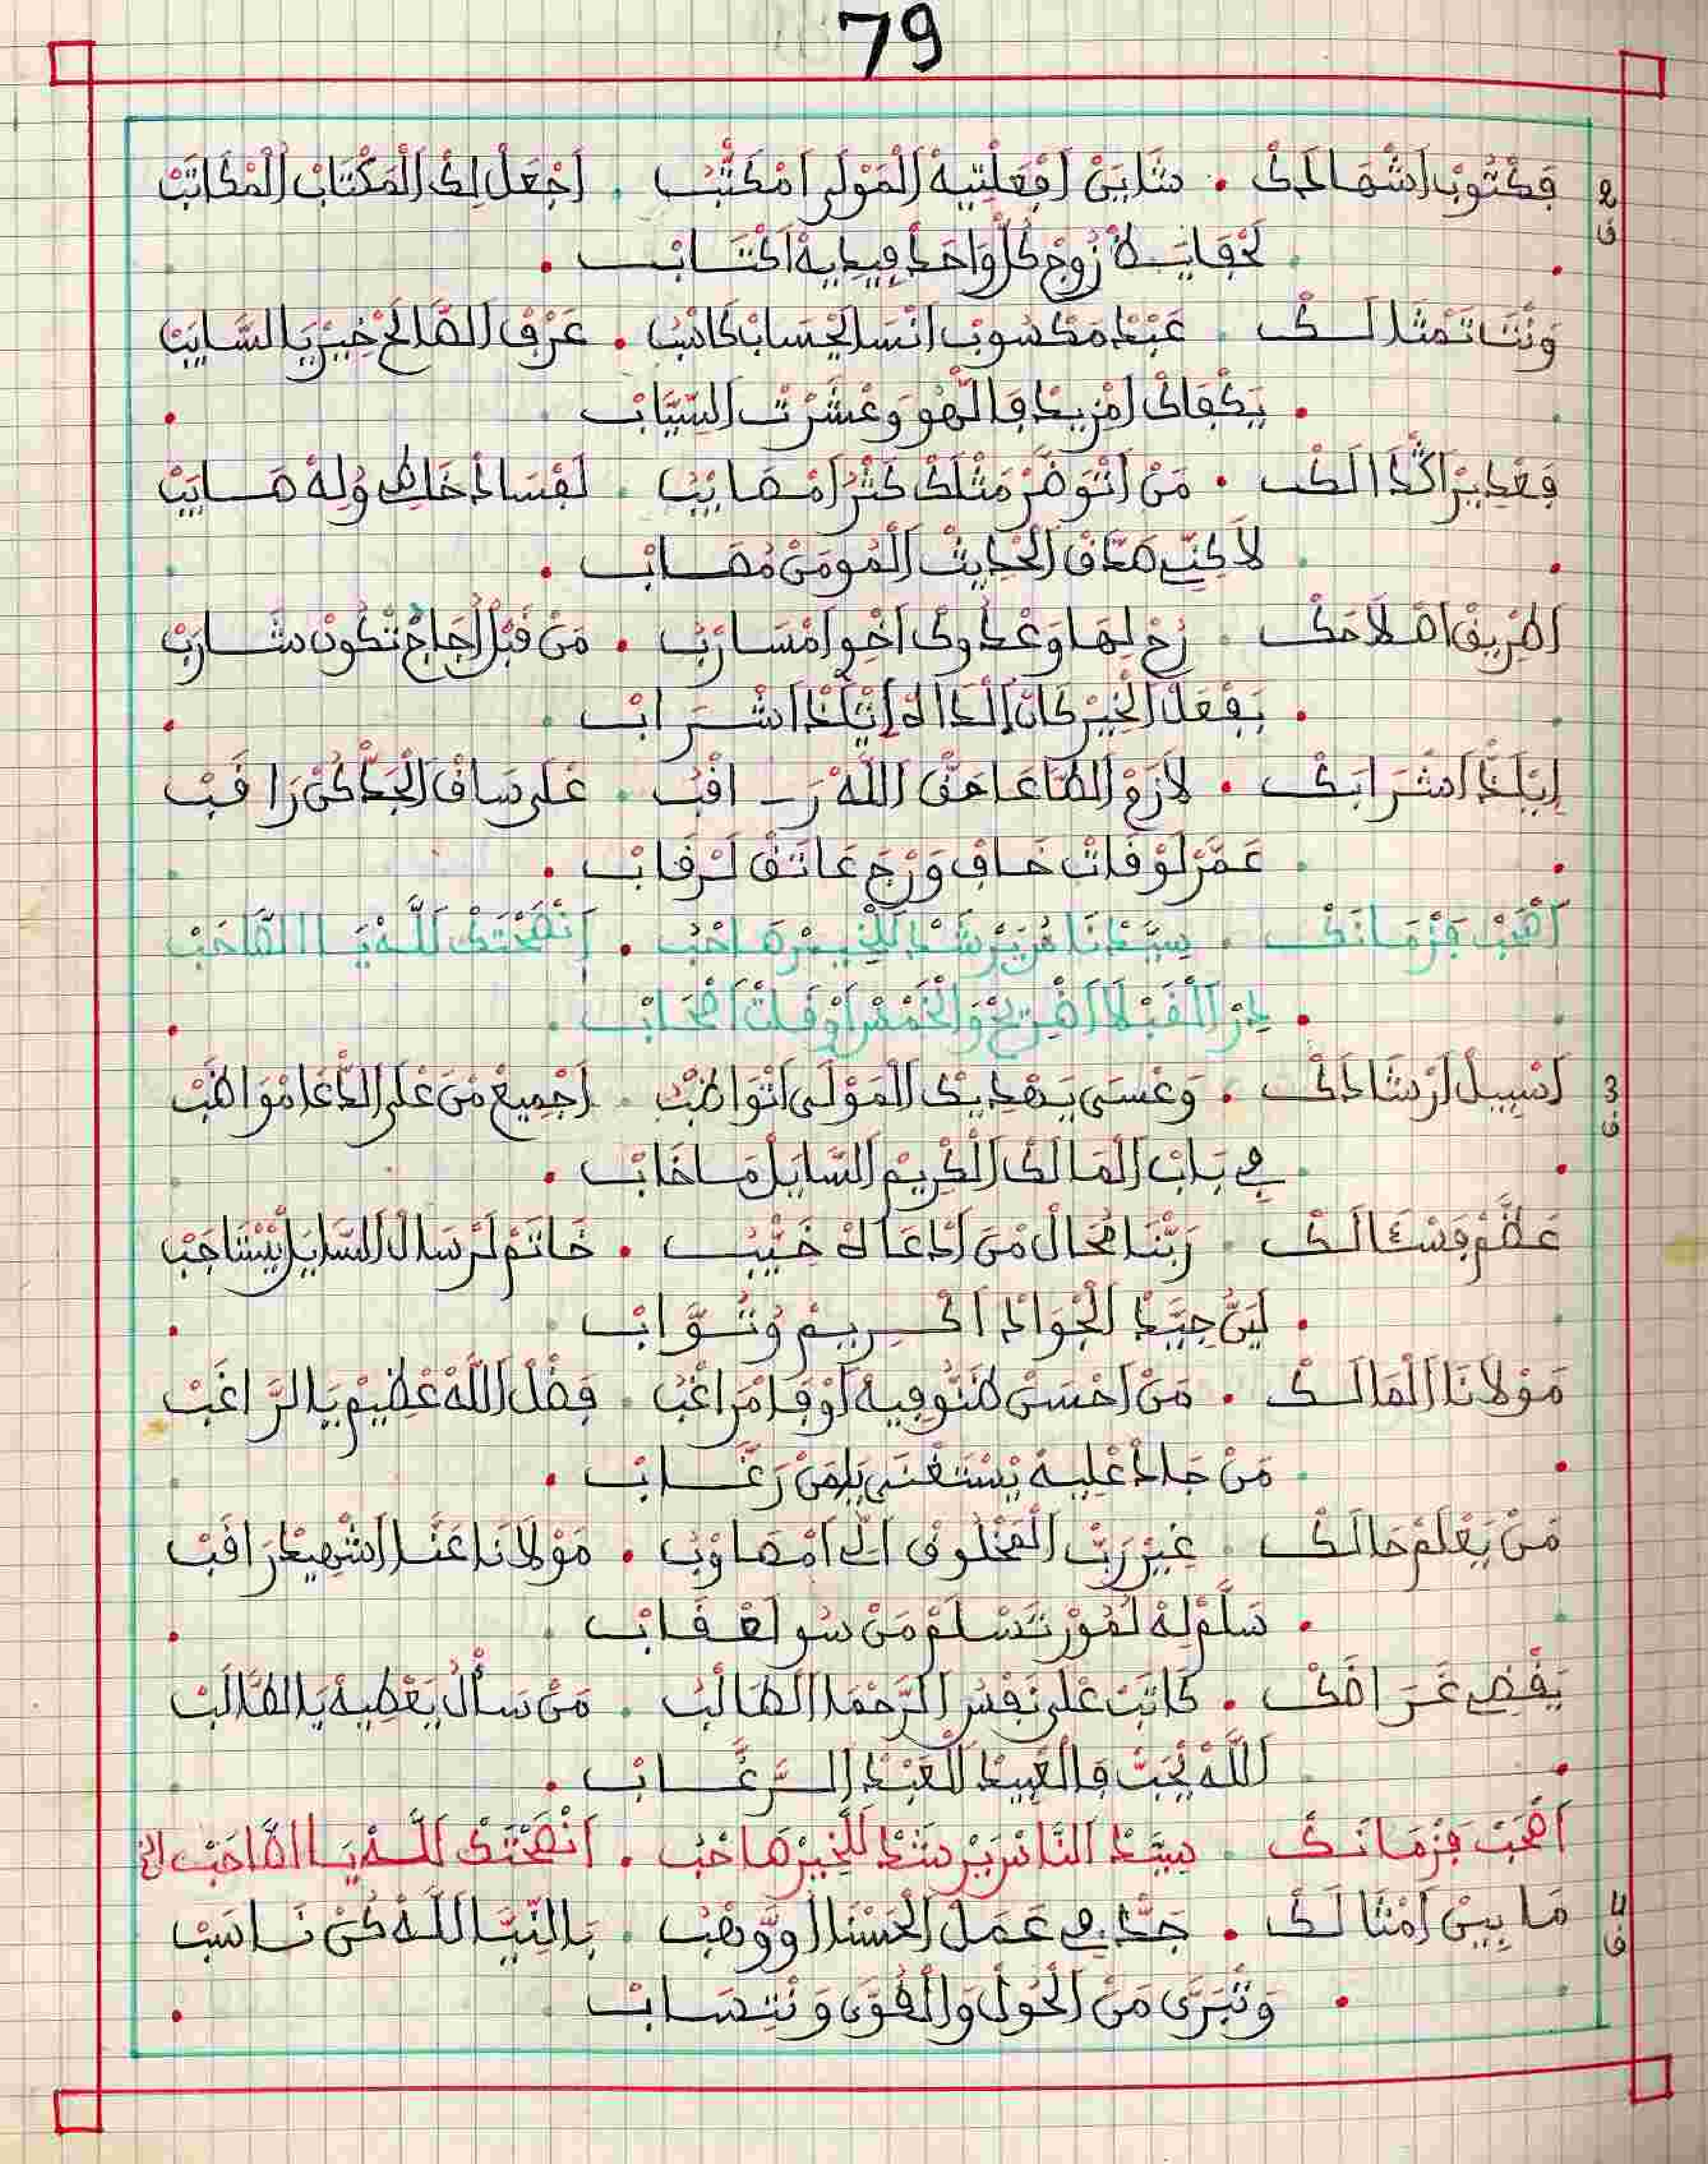 79
2 ف فَكْتُوبْ اشْهَادَكْ . شَايَنْ افْعَلْتِيهْ الْمَوْلَى امْكَتَّبْ . اجْعَلْ لِكْ الْمَكْتَابْ الْمْكَاتَبْ
لَحْفَايَــضْ لَزُوجْ كُلْ وَاحَدْ فِيدِيهْ اكْتَــابْ .
وَنْتَ تَمْثَالَــكْ . عَبْدْ مَكْسُوبْ انْسَ الْحْسَابْ كَاسْبُ . عَرْفْ الصَّالَحْ خِيرْ يَا السَّايَبْ
. يَكْفَاكْ امْزِيدْ فَاللَّهُو وَعْشَرْتْ السِّيَّابْ .
فَعْدِيرْ اكْدَالَكْ . مَنْ اتْوَضَّرْ مَثْلَكْ كَثْرُ امْصَايْبُ . لَفْسَادْ خَاطِي وُلِهْ صَــايَبْ
لَاكِنِّي صَدَّقْ الْحْدِيثْ الْمُومَنْ مُصَــابْ .
اطْرِيقْ اصْلَاحَكْ . رُحْ لِهَا وَعْدُوكْ اخْوِ امْسَــارْبُ . مَنْ قَبْلْ اجَاجْ تْكُونْ شَــارَبْ
. بَفْعَلْ الْخِيرْ كَانْ الَدَّا لَهْ ايَّلَذْ اشْــرَابْ .
ايَلَذْ اشْرَابَكْ . لَازَمْ الطَّاعَا حَقْ اللَّهْ رَــاقْبُ . عْلَى سَاقْ الْجَدّْ كُنْ رَاقَبْ
عَمَّرْ لَوْقَاتْ خَافْ وَرْجَ عَاتَقْ لَــرْقَابْ .
اصْحَبْ فَزْمَانَكْ . سِيَّدْنَا مُرْيَرْشَدْ لَلْخِيــرْ صَاحْبُ . انْصَحْتَكْ لَلَّــهْ يَــا الصَّاحَبْ
. دِرْ الْقَبْلَا اضْرِيحْ وَالْخَمْسْ اوْقَاتْ اصْحَابْ .
3 ف اسْبِيلْ ارْشَادَكْ . وَعْسَى يَــهْدِيكْ الْمَوْلَى اتْوَاظْبُ . اجْمِيعْ مَنْ عْلَى الدّْعَا مْوَاظَبْ
فِي بَابْ الْمَالَكْ الْكْرِيمْ السَّايَلْ مَــا خَابْ .
عَظَّمْ فَسْءَالَكْ . رَبّْنَا مُحَالْ مَنْ ادْعَاهْ خَيّْبُ . خَاتَمْ لَرْسَالْ السَّايَلْ يَسْتَاجَبْ
. لَيَنّْ جِيَّدْ الْجْوَادْ اكْــرِيــمْ وُتُــوَّابْ .
مَوْلَانَا الْمَالَــكْ . مَنْ احْسَنْ ظَنُّو فِيهْ اوْفَا مْرَاغْبُ . فَضْلْ اللَّهْ عْظِيمْ يَا الرَّاغَبْ
مَنْ جَادْ عْلِيهْ يَسْتَغْنَى يَلمَنْ رَغَّــابْ .
مَنْ يَعْلَمْ حَالَكْ . غِيرْ رَبّْ الْمَخْلُوقْ الِي امْصَاوْبُ . مَوْلَانَا عَنَّا اشْهِيدْ رَاقَبْ
. سَلَّمْ لِهْ لُمُورْ تَسْلَمْ مَنْ سُو لَعْقَابْ .
يَقْضِي غَــرَاضَكْ . كَاتَبْ عْلَى نَفْسُ الرَّحْمَا الطَالْبُ . مَنْ سَأَلُ يَعْطِيهْ يَا الطَّالَبْ
اللَّهْ يْحَبْ فَالْعْبِيدْ الْعَبْدْ الــرَّغَّــابْ .
اصْحَبْ فَزْمَانَكْ . سِيَّدْ النَّاسْ يَرْشَدْ لَلْخِيرْ صَاحْبُ . انْصَحْتَكْ لَلَّــهْ يَــا الصَّاحَبْ الخ
4 ف مَا بِينْ امْثَالَكْ . جَدّْ فِي عَمَلْ الْحَسْنَا اوْ وَهْبُ . بَالنِّيَّــا اللَّهْ كُنْ نَــاسَبْ
. وَتْبَرَّى مَنْ الْحُولْ وَالْقُوَى وَنْتِــسَــابْ .